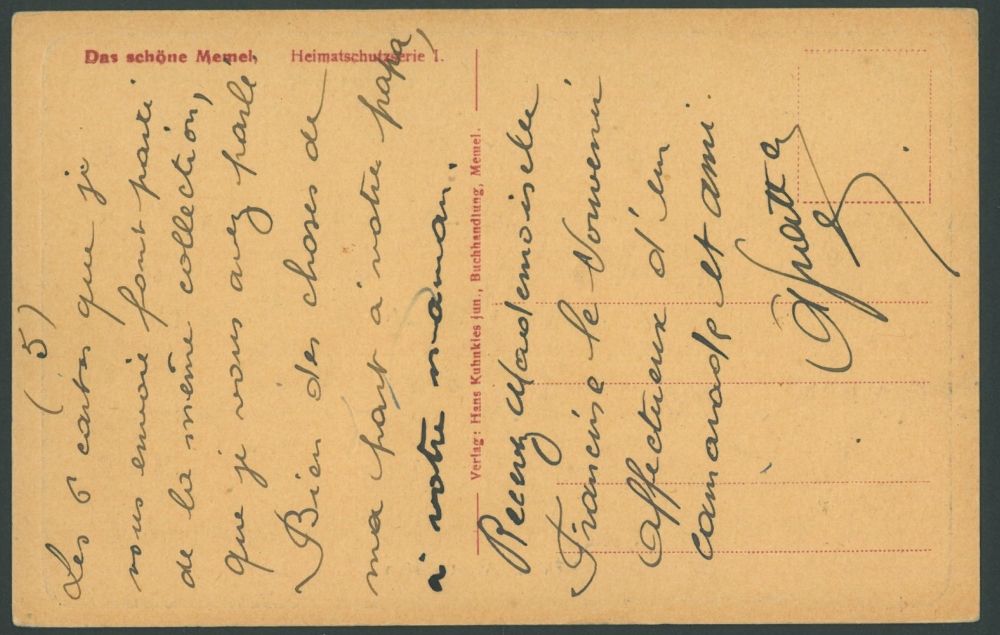 Das schöne Memel. Heimatschutzserie I.
Verlag: Hans Kuhnkies jun., Buchhandlung, Memel.
(5)
Les 6 cartes que je
vous envoie font parti
de la même collection,
que je vous avez parlé
Bien des choses de
ma part à votre papa,
à votre maman.
Recevez Mademoiselle
Francine le Souvenir
affectueux d'un
camarade et ami.